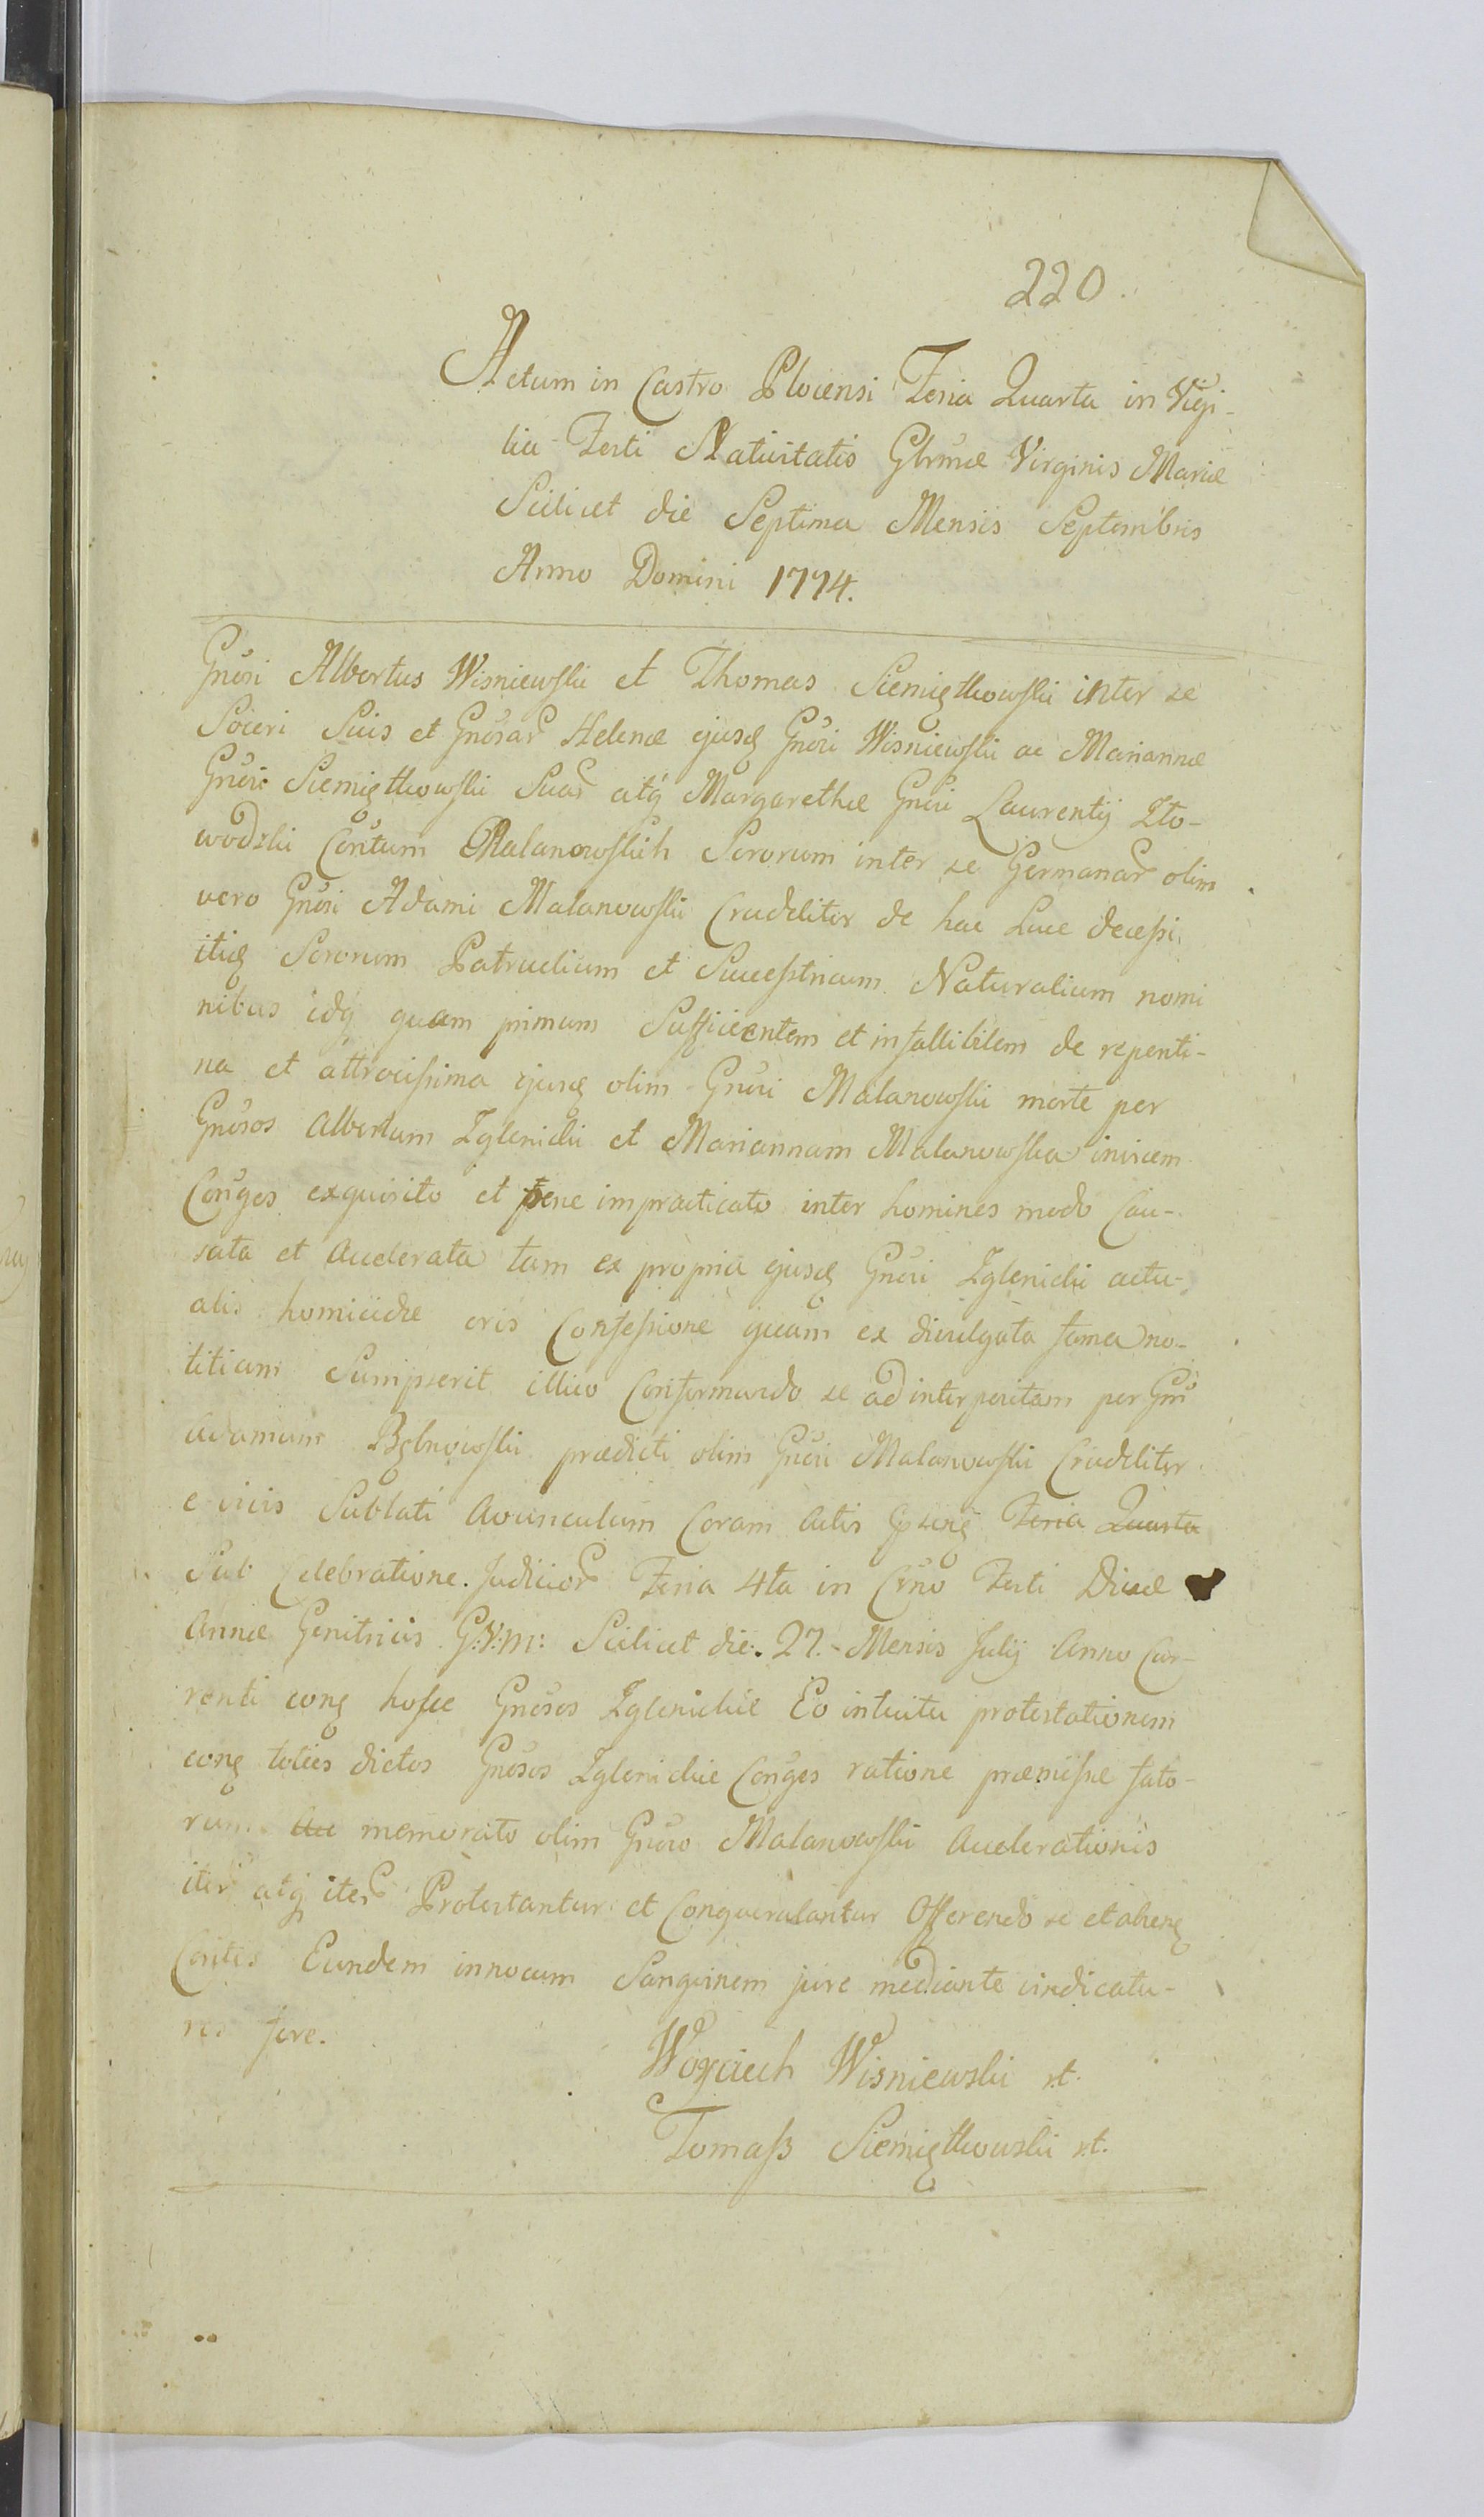 220.
Actum in Castro Plocensi Feria Quarta in Vigi-
lia Festi Nativitatis Glrmæ Virginis Mariæ
Scilicet die Septima Mensis Septembris
Anno Domini 1774.
Gnosi Albertus Wisniewski et Thomas Siemiątkowski inter se
Soceri Suis et Gnosar Helenæ ejusq Gnosi Wisniewski ac Mariannæ
Gnosi Siemiątkowski Suar atq Margarethæ Gnosi Laurentij Zto-
wodzki Contum Malanowskich Sororum inter se Germanar olim
vero Gnosi Adami Malanowski Crudeliter de hac Luce decessi
itiq Sororum Patruelium et Successtricum Naturalium nomi
nibus idq quam primum Sufficientem et infallibilem de repenti-
na et attrocissima ejusq olim Gnosi Malanowski morte per
Gnosos Albertum Zglenicki et Mariannam Malanowska invicem
Conges exquisito et pene impracticato inter homines modo Cau-
sata et Accelerata tam ex propria ejusq Gnosi Zglenicki actu-
alis homicidæ oris Confessione quam ex divulgata fama no-
titiam Sumpserit illico Conformando se ad interpositam per Gm
Adamum Bębnowski prædicti olim Gnosi Malanowski Crudeliter
e vivis Sublati Avunculum Coram Actis Feria Quarta
Sub Celebratione Judicior Feria 4ta in Crno Festi Divæ
Annæ Genitricis G:V:M: Scilicet die 27. Mensis Julij Anno Cur-
renti cong hosce Gnosos Zglenickie Eo intuitu protestationem
cong toties dictos Gnosos Zglenickie Conges ratione præmissæ fato-
rum Ac memorato olim Gnoso Malanowski Accelerationis
iter atq iter Protestantur et Conquerulantur Offerendo se et
Contes Eundem innocuum Sanguinem jure mediante vindicatu-
ros fore.
Woyciech Wisniewski st.
Tomasz Siemiątkowski st.